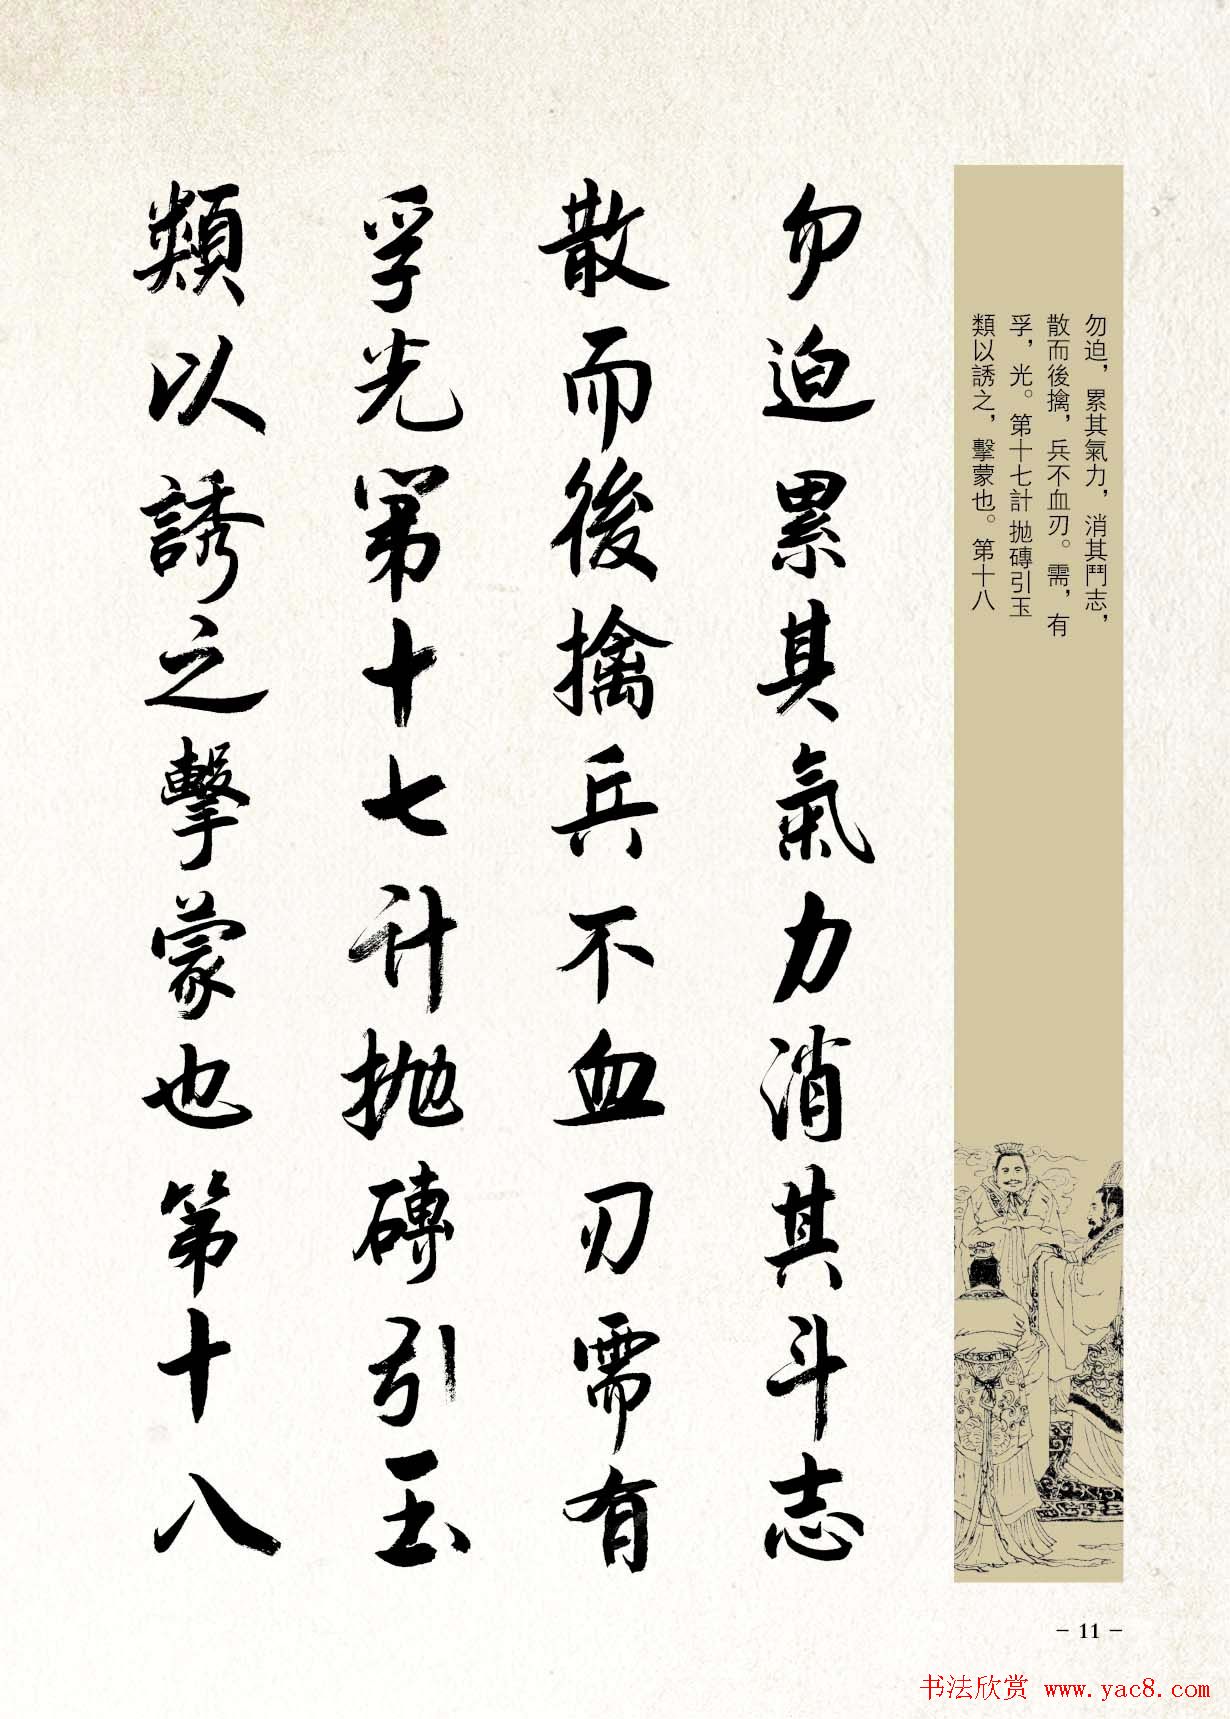 勿迫，累其氣力，消其鬥志，
散而後擒，兵不血刃。需，有
孚，光。第十七計 拋磚引玉
類以誘之，擊蒙也。第十八
勿迫累其氣力消其斗志
散而後擒兵不血刃需有
孚光第十七计抛磚引玉
類以誘之擊蒙也第十八
- 11 -
书法欣赏 www.yac8.com